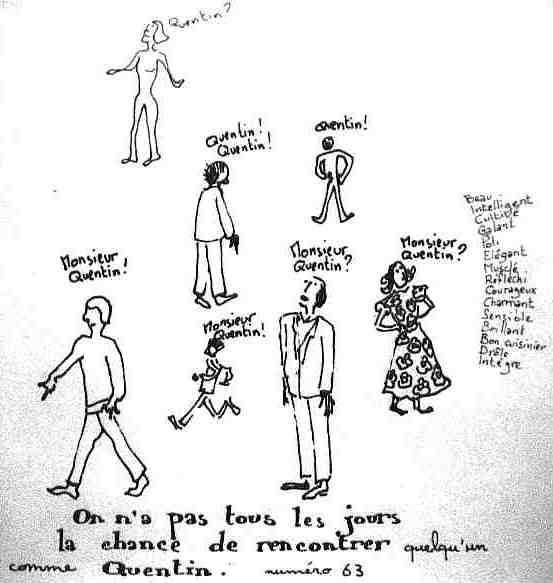 Quentin?
Quentin!
Quentin!
Quentin!
Monsieur
Quentin!
Monsieur
Quentin!
Monsieur
Quentin?
Monsieur
Quentin?
Beau
Intelligent
Cultivé
Galant
Poli
Elégant
Musclé
Réfléchi
Courageux
Charmant
Sensible
Brillant
Bon cuisinier
Drôle
Intègre
On n'a pas tous les jours
la chance de rencontrer quelqu'un
comme Quentin. numéro 63